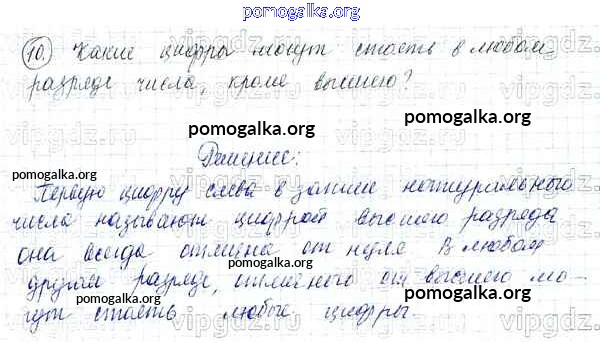 pomogalka.org
10. Какие цифры могут стоять в любом
разряде числа, кроме высшего?
pomogalka.org
pomogalka.org
Решение:
pomogalka.org
Первую цифру слева в записи натурального
числа называют цифрой высшего разряда
она всегда отлична от нуля В любом
другом разряде, отличного от высшего мо-
pomogalka.org
pomogalka.org
гут стоять любые цифры
vipgdz.ru